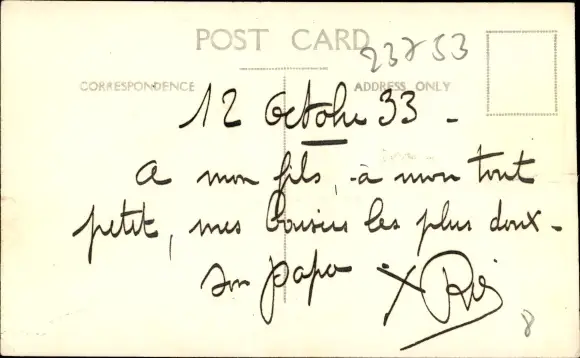 POST CARD
23753
CORRESPONDENCE
ADDRESS ONLY
12 Octobre 33 -
A mon fils, à mon tout
petit, mes baisers les plus doux -
Son papa
8